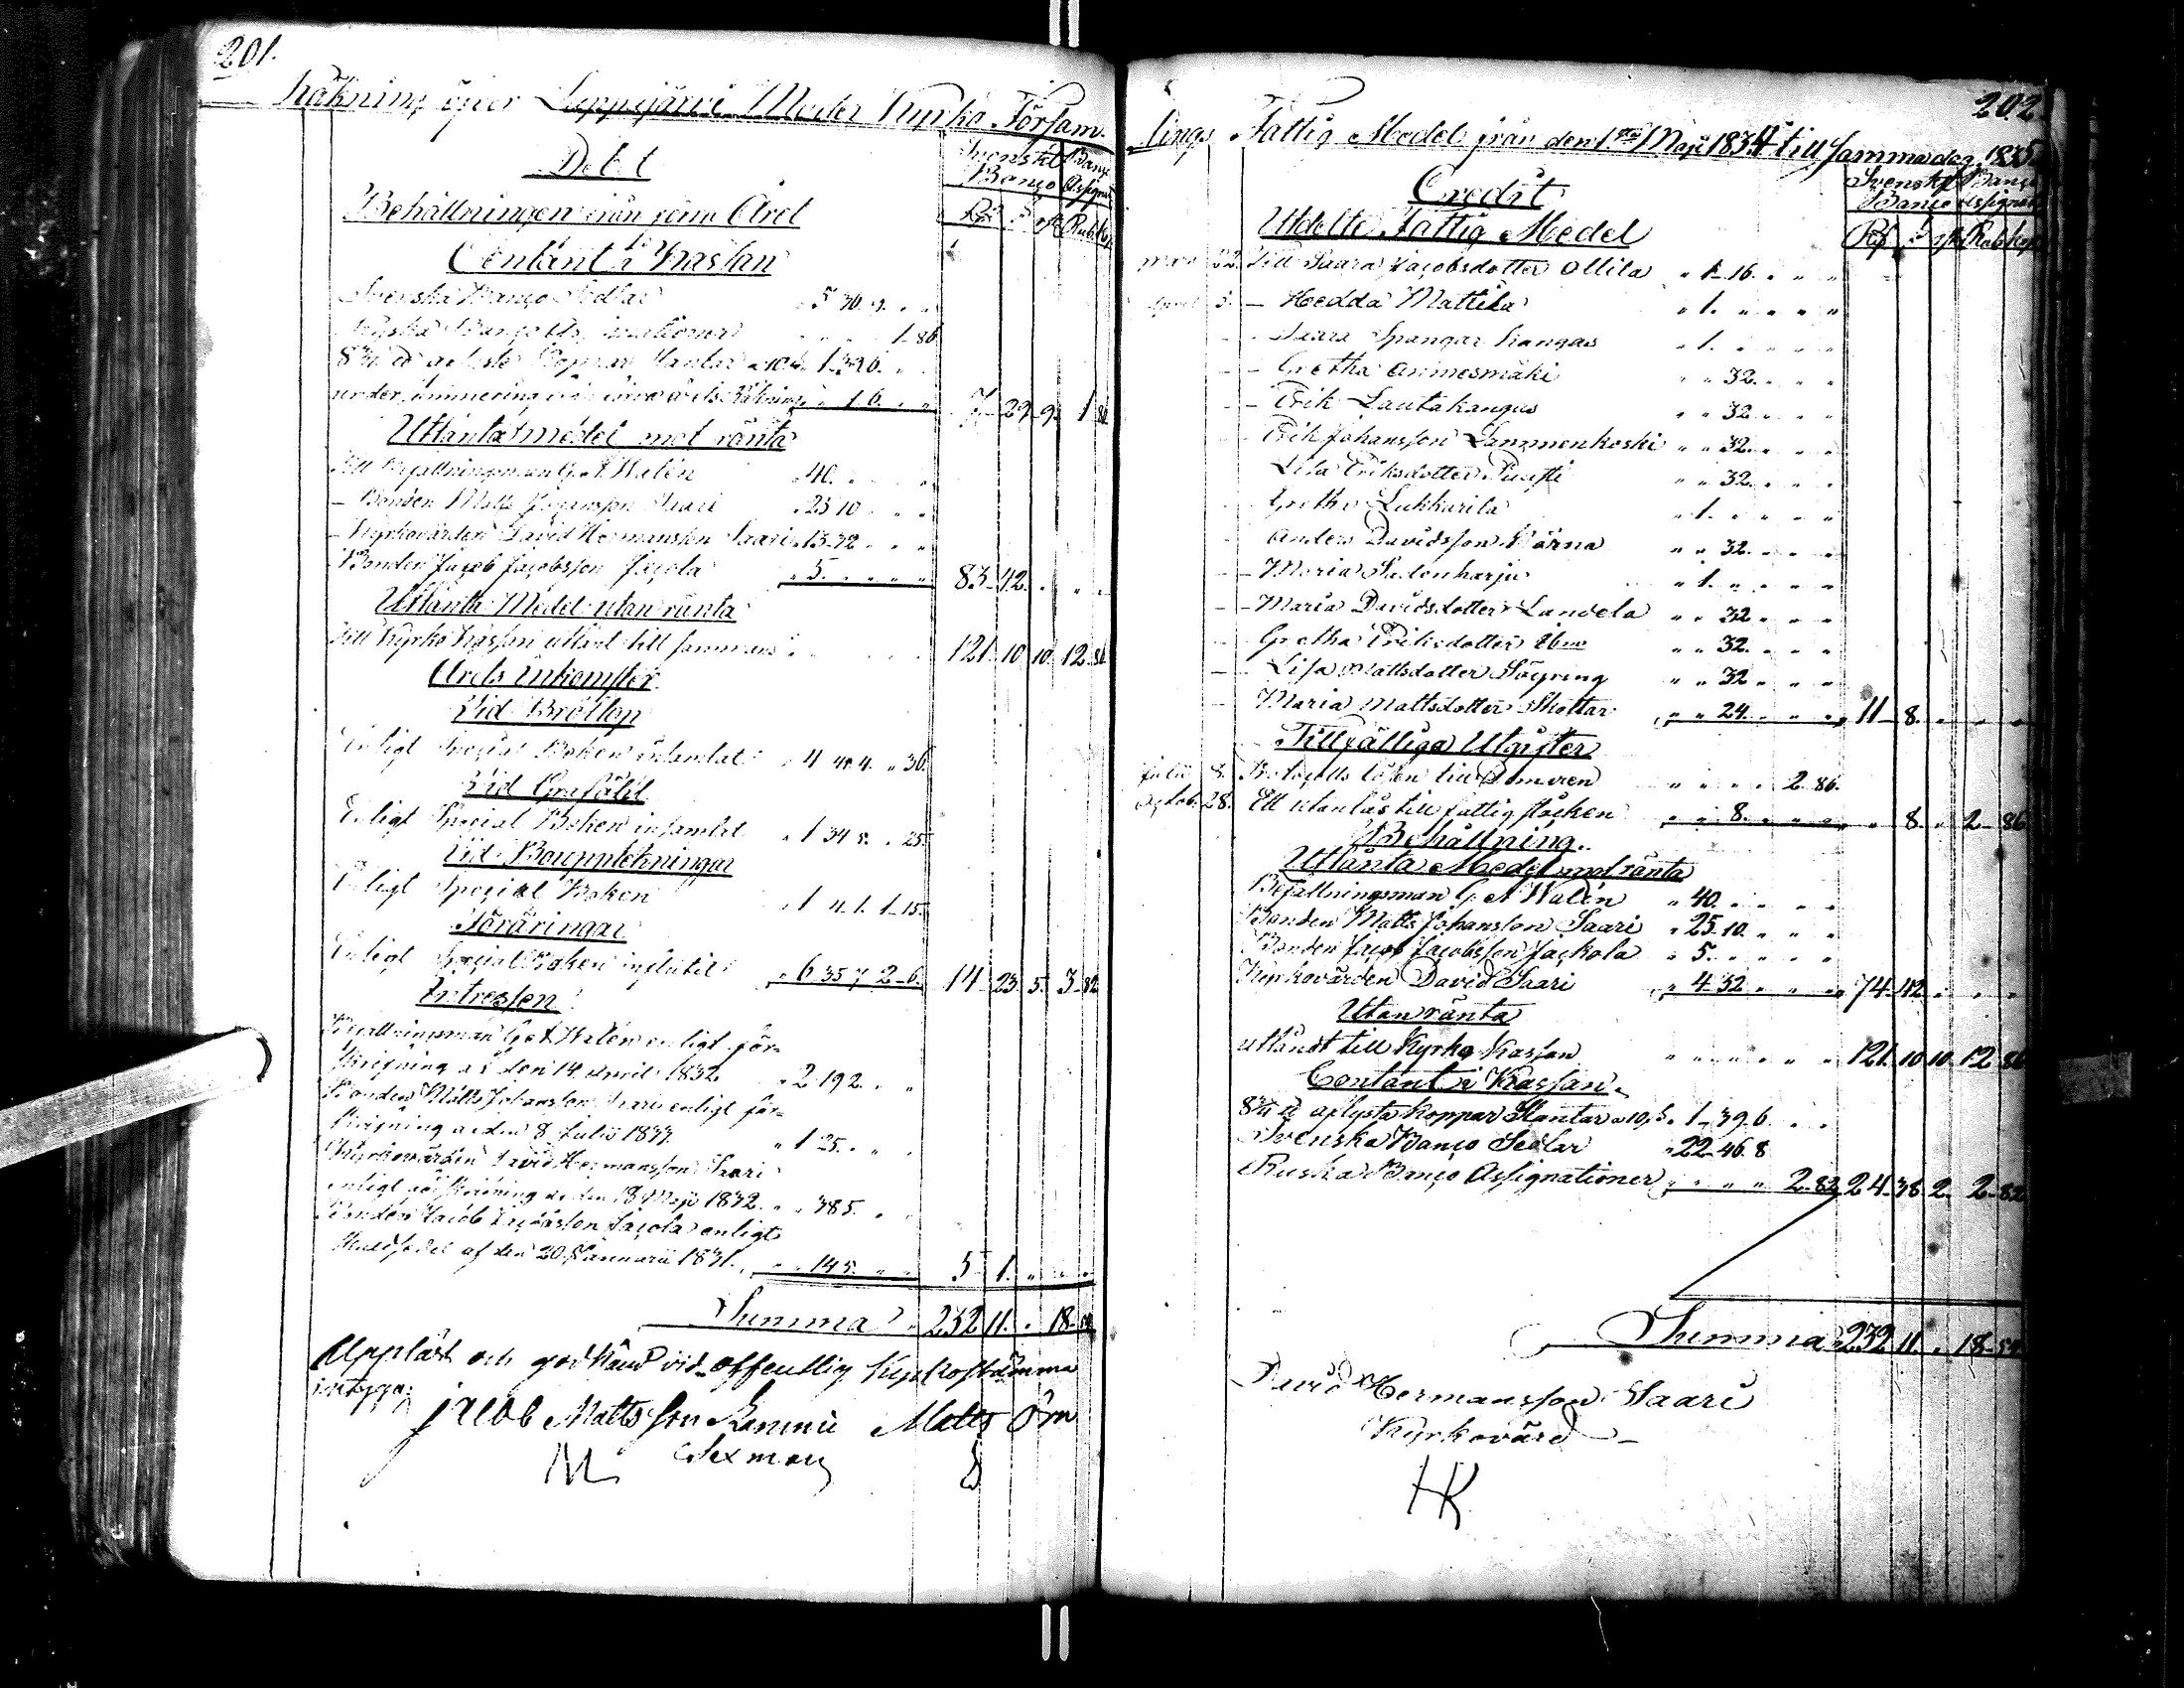 201.
Räkning öfver Lappajärvi Moder Kyrko Försam-
Debet
Svenskt Banco
Banco Assignat
Rd s rst Rub. Kop.
Behållningen från förra Året
Contant i Kassan
Svenska Banco Sedlar " 5 30. 9. " "
Ryska Banco Assignationer 1-86
aflyste Koppar Slantar a 10 s. 1-39. 6.
under summering i förra årets Räkning " " 1. 6. " " 7- 29- 9. 1 86
Utlånta medel mot ränta
Till Befallningsman G. A. Walén " 40. " "
- Bonden Matts Johansson Saari " 25 10 " " "
- Kyrkovärden David Hermansson Saari " 13-32 " " "
Bonden Jacob Jacobsson Jacola " 5. " " " " 83-42. " " "
Utlånta Medel utan ränta
Till Kyrko Kassan utlånt till sammans 121. 10 10. 12-86
Årets inkomster
Vid Bröllop
Enligt Special Boken insamlat " 4 " 4. " 36.
Vid Graföl
Enligt Special Boken insamlat " 1 34 8. " 25.
Vid Bouppteckningar
Enligt Special Boken " 1 4. 1. 1-15.
Föräringar
Enligt Special Boken influtit " 6 35 7 2-6. 14 23. 5. 3-82
Intressen
Befallningsman G. A. Walén enligt för-
skrifning af den 14 April 1832. " 2 19 2. " "
Bonden Matts Johansson Saari enligt för-
skrifning af den 8 Julii 1833. " 1 25. " "
Kyrkovärden David Hermansson Saari
enligt förskrifning af den 18 Maji 1832. " " 38 5. " "
Bonden Jacob Jacobsson Jacola enligt
Skuldsedel af den 20 Januarii 1831. " " 14 5. " " 5 1. " " "
Summa " 232 11. " 18-54
Uppläst och godkänd vid offentlig Kyrkostämma
intyga;
Jacob Mattsson Matts Öm
Sexman
202.
lings Fattig Medel från den 1sta Maji 1834 till samma dag 1835
Credit
Svenskt Banco
Banco Assignat
Rd s rst Rub. Kop.
Utdelte Fattig Medel
22. Till Saara Jacobsdotter Ollila " 1-16. " " "
April 3. - Hedda Mattila " 1. " " " "
- - Saara Spangar Kangas " 1. " " " "
- - Gretha Annesmäki " " 32. " " "
- - Erik Lautakangas " " 32. " " "
Erik Johansson Lammenkoski " " 32. " " "
Lisa Eriksdotter " " 32. " " "
Gretha Lukkarila " 1. " " " "
Anders Davidsson Kärna " " 32. " " "
- Maria Salonharju " 1. " " " "
- - Maria Davidsdotter Landela " " 32 " " "
Gretha Eriksdotter " " 32. " " "
- - Lisa Mattsdotter " " 32 " " "
- - Maria Mattsdotter Skottar " " 24. " " " 11- 8. " " "
Tillfälliga Utgifter
Julii 8. Protocolls lösen till Domaren " " " " 2-86.
Octob. 28. Ett utanlås till fattigstocken " " 8. " " " " 8. " 2-86
Behållning.
Utlånta Medel mot ränta
Befallningsman G. A. Walén " 40. " " " "
Bonden Matts Johansson Saari " 25-10. " " "
Bonden Jacob Jacobsson Jackola " 5. " " " "
Kyrkovärden David Saari " 4-32 " " " 74-42. " " "
Utan ränta
utlåndt till Kyrko Kassan " " " " " " 121. 10 10. 12 86
Contant i Kassan.
aflysta Koppar Slantar a 10 s. 1-39. 6 " "
Svenska Banco Sedlar " 22-46. 8
Ruska Banco Assignationer " " " " 2-82 24-38. 2. 2-82
Summa " 232 11. " 18-54
David Hermansson Saari
Kyrkovärd